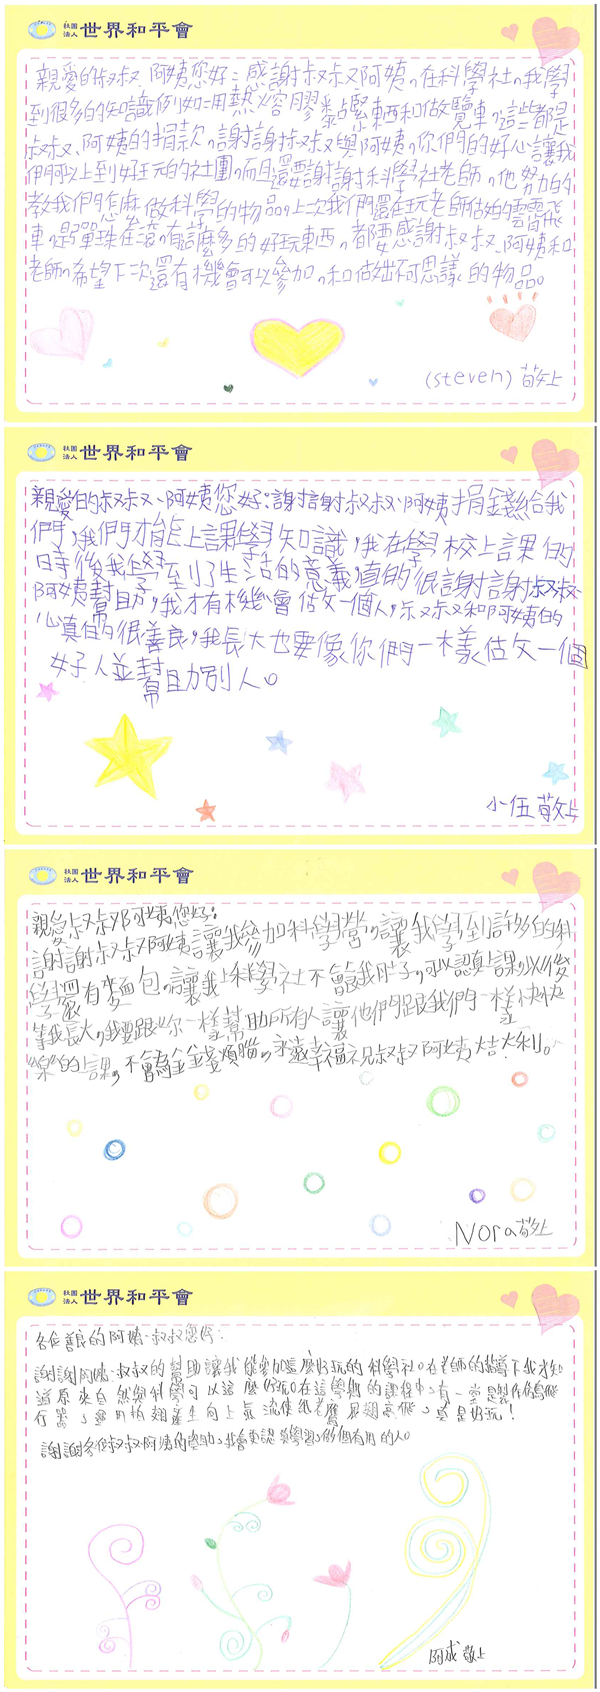 社團法人 世界和平會
親愛的叔叔、阿姨您好：感謝叔叔、阿姨，在科學社，我學
到很多的知識例如：用熱熔膠黏緊東西和做覽車，這些都是
叔叔、阿姨的捐款，謝謝叔叔與阿姨，你們的好心讓我
們可以上到好玩的社團，而且還要謝謝科學社老師，他努力的
教我們怎麼做科學的物品，上次我們還在玩老師做的雲霄飛
車，是彈珠在滾，有這麼多的好玩東西，都要感謝叔叔、阿姨和
老師，希望下次還有機會可以參加，和做出不可思議的物品。
(steven) 敬上
社團法人 世界和平會
親愛的叔叔、阿姨您好：謝謝叔叔、阿姨捐錢給我
們，我們才能上課學知識，我在學校上課的
時後我學到了生活的意義，真的很謝謝叔叔
阿姨幫助，我才有機會做一個人，叔叔和阿姨的
心真的很善良，我長大也要像你們一樣做一個
好人並幫助別人。
小伍 敬上
社團法人 世界和平會
親愛叔叔阿姨您好：
謝謝叔叔阿姨讓我參加科學營，讓我學到許多的科
學還有麵包，讓我上科學社不會餓肚子，可以認真上課，以後
等我長大，我要跟你一樣幫助所有人讓他們跟我們一樣快快
樂樂的上課，不會為金錢煩腦，永遠幸福祝叔叔阿姨大吉大利。
Nora 敬上
社團法人 世界和平會
各位善良的阿姨、叔叔您好：
謝謝阿姨、叔叔的幫助讓我能參加這麼好玩的科學社。在老師的教導下我才知
道原來自然與科學可以這麼好玩。在這學期的課程中，有一堂是製作鳥飛
行器，要用拍翅產生向上氣流使紙老鷹展翅高飛，真是好玩！
謝謝多位叔叔阿姨的資助，我會更認真學習，做個有用的人。
阿成 敬上